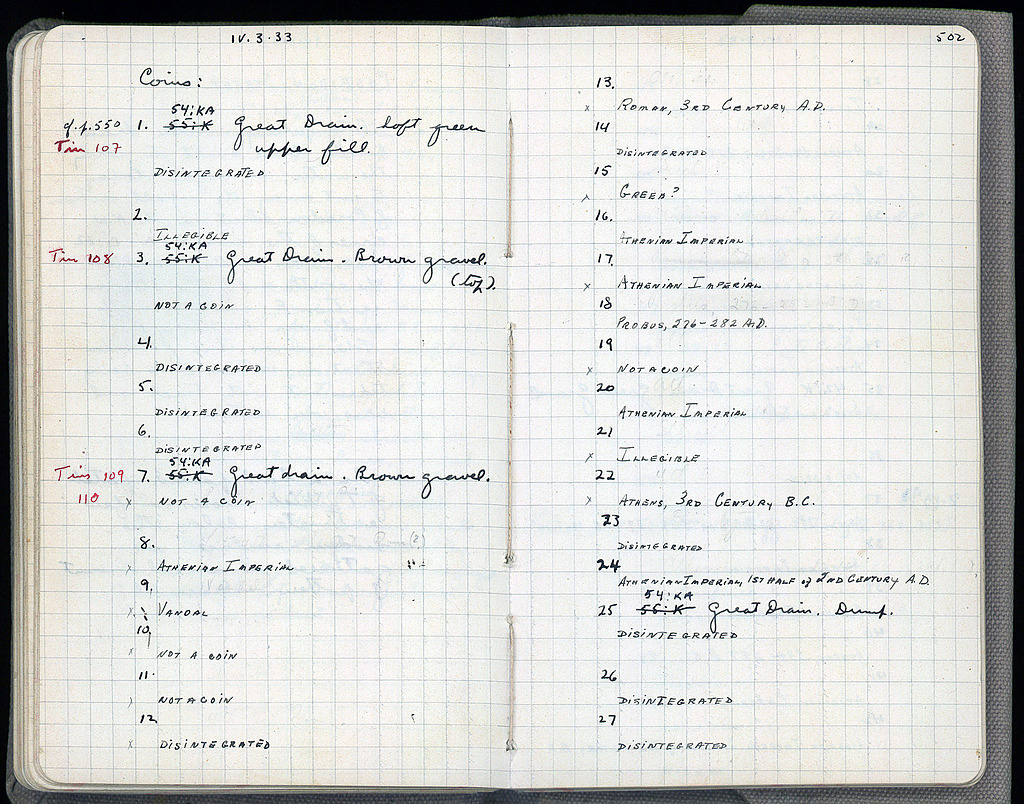 IV. 3. 33
Coins:
54:KA
cf. p. 550 1. 55:K Great Drain. Soft green
Tin 107 upper fill.
DISINTEGRATED
2.
ILLEGIBLE
54:KA
Tin 108 3. 55:K Great Drain. Brown gravel.
(top).
NOT A COIN
4.
DISINTEGRATED
5.
DISINTEGRATED
6.
DISINTEGRATED
54:KA
Tins 109 7. 55:K Great drain. Brown gravel.
110 x NOT A COIN
8.
x ATHENIAN IMPERIAL
9.
x VANDAL
10.
x NOT A COIN
11.
x NOT A COIN
12
x DISINTEGRATED
502
13.
x ROMAN, 3RD CENTURY A.D.
14
DISINTEGRATED
15
x GREEK?
16.
ATHENIAN IMPERIAL
17.
x ATHENIAN IMPERIAL
18
PROBUS, 276-282 A.D.
19
x NOT A COIN
20
ATHENIAN IMPERIAL
21
x ILLEGIBLE
22
x ATHENS, 3RD CENTURY B.C.
23
DISINTEGRATED
24
ATHENIAN IMPERIAL, 1ST HALF of 2ND CENTURY A.D.
54:KA
25 55:K Great Drain. Dump.
DISINTEGRATED
26
DISINTEGRATED
27
DISINTEGRATED